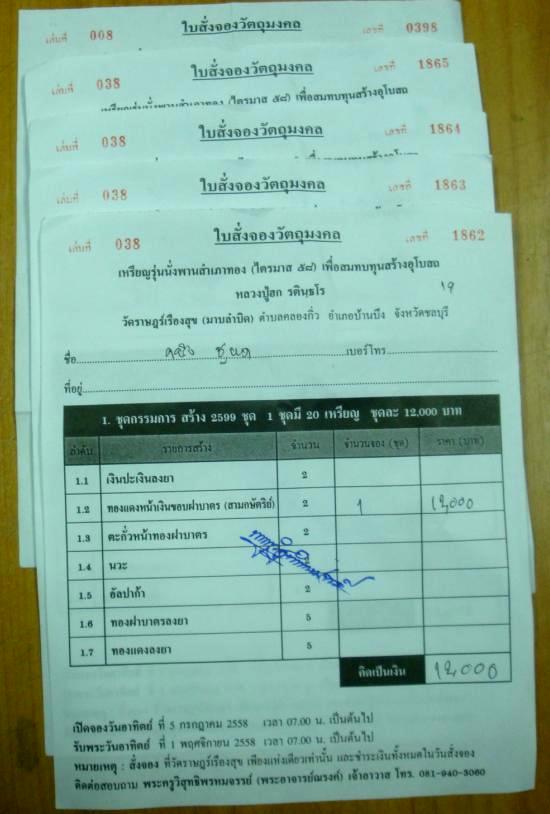 เล่มที่ 008 ใบสั่งจองวัตถุมงคล เลขที่ 0398
เล่มที่ 038 ใบสั่งจองวัตถุมงคล เลขที่ 1865
เหรียญรุ่นนั่งพานสำเภาทอง (ไตรมาส ๕๘) เพื่อสมทบทุนสร้างอุโบสถ
เล่มที่ 038 ใบสั่งจองวัตถุมงคล เลขที่ 1864
เล่มที่ 038 ใบสั่งจองวัตถุมงคล เลขที่ 1863
เล่มที่ 038 ใบสั่งจองวัตถุมงคล เลขที่ 1862
เหรียญรุ่นนั่งพานสำเภาทอง (ไตรมาส ๕๘) เพื่อสมทบทุนสร้างอุโบสถ
หลวงปู่ฮก รตินฺธโร 19
วัดราษฎร์เรืองสุข (มาบลำบิด) ตำบลคลองกิ่ว อำเภอบ้านบึง จังหวัดชลบุรี
ชื่อ เบอร์โทร
ที่อยู่
1. ชุดกรรมการ สร้าง 2599 ชุด 1 ชุดมี 20 เหรียญ ชุดละ 12,000 บาท
ลำดับ รายการสร้าง จำนวน จำนวนจอง (ชุด) ราคา (บาท)
1.1 เงินปะเงินลงยา 2
1.2 ทองแดงหน้าเงินขอบฝาบาตร (สามกษัตริย์) 2 1 12,000
1.3 ตะกั่วหน้าทองฝาบาตร 2
1.4 นวะ
1.5 อัลปาก้า 2
1.6 ทองฝาบาตรลงยา 5
1.7 ทองแดงลงยา 5
คิดเป็นเงิน 12,000
เปิดจองวันอาทิตย์ ที่ 5 กรกฎาคม 2558 เวลา 07.00 น. เป็นต้นไป
รับพระวันอาทิตย์ ที่ 1 พฤศจิกายน 2558 เวลา 07.00 น. เป็นต้นไป
หมายเหตุ : สั่งจอง ที่วัดราษฎร์เรืองสุข เพียงแห่งเดียวเท่านั้น และชำระเงินทั้งหมดในวันสั่งจอง
ติดต่อสอบถาม พระครูวิสุทธิพรหมจรรย์ (พระอาจารย์ณรงค์) เจ้าอาวาส โทร. 081-940-3060